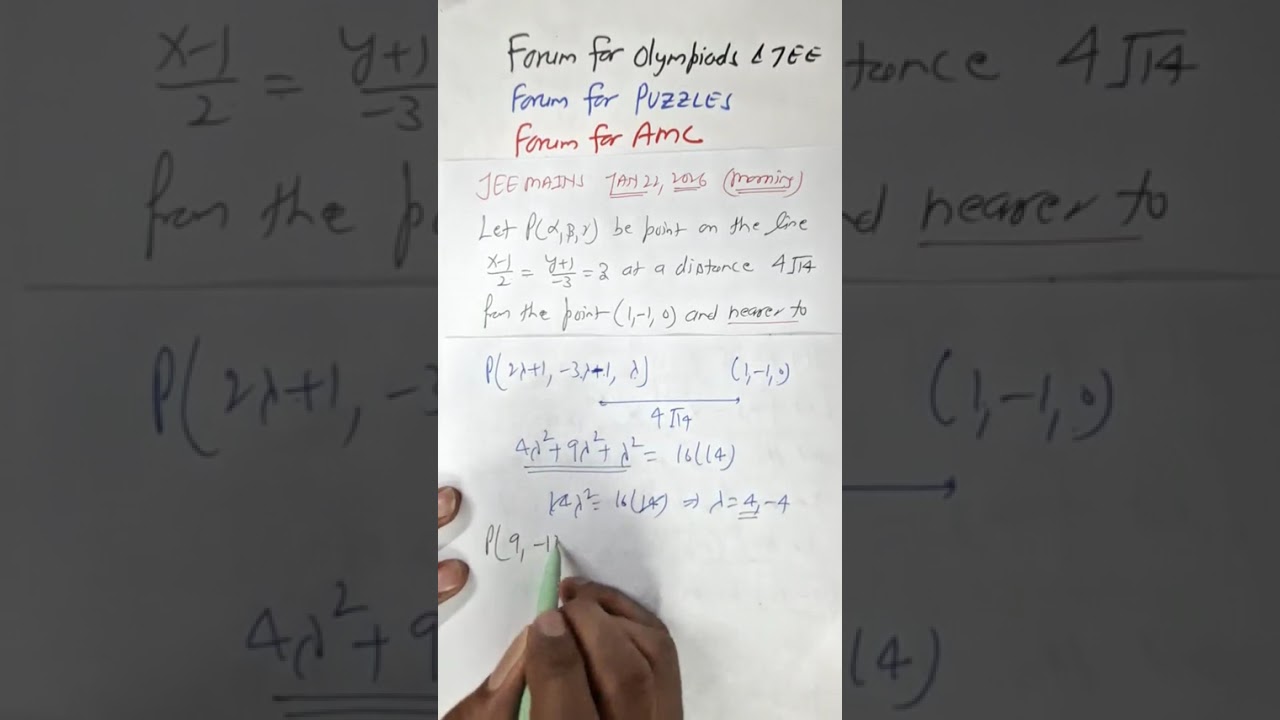 Forum for Olympiads & JEE
Forum for PUZZLES
Forum for AMC
JEE MAINS JAN 22, 2026 (Morning)
Let P(α, β, γ) be point on the line
x-1/2 = y+1/-3 = z at a distance 4√14
from the point (1, -1, 0) and nearer to
P(2λ+1, -3λ-1, λ) (1, -1, 0)
4√14
4λ²+9λ²+λ² = 16(14)
14λ² = 16(14) ⇒ λ = 4, -4
P(9, -1